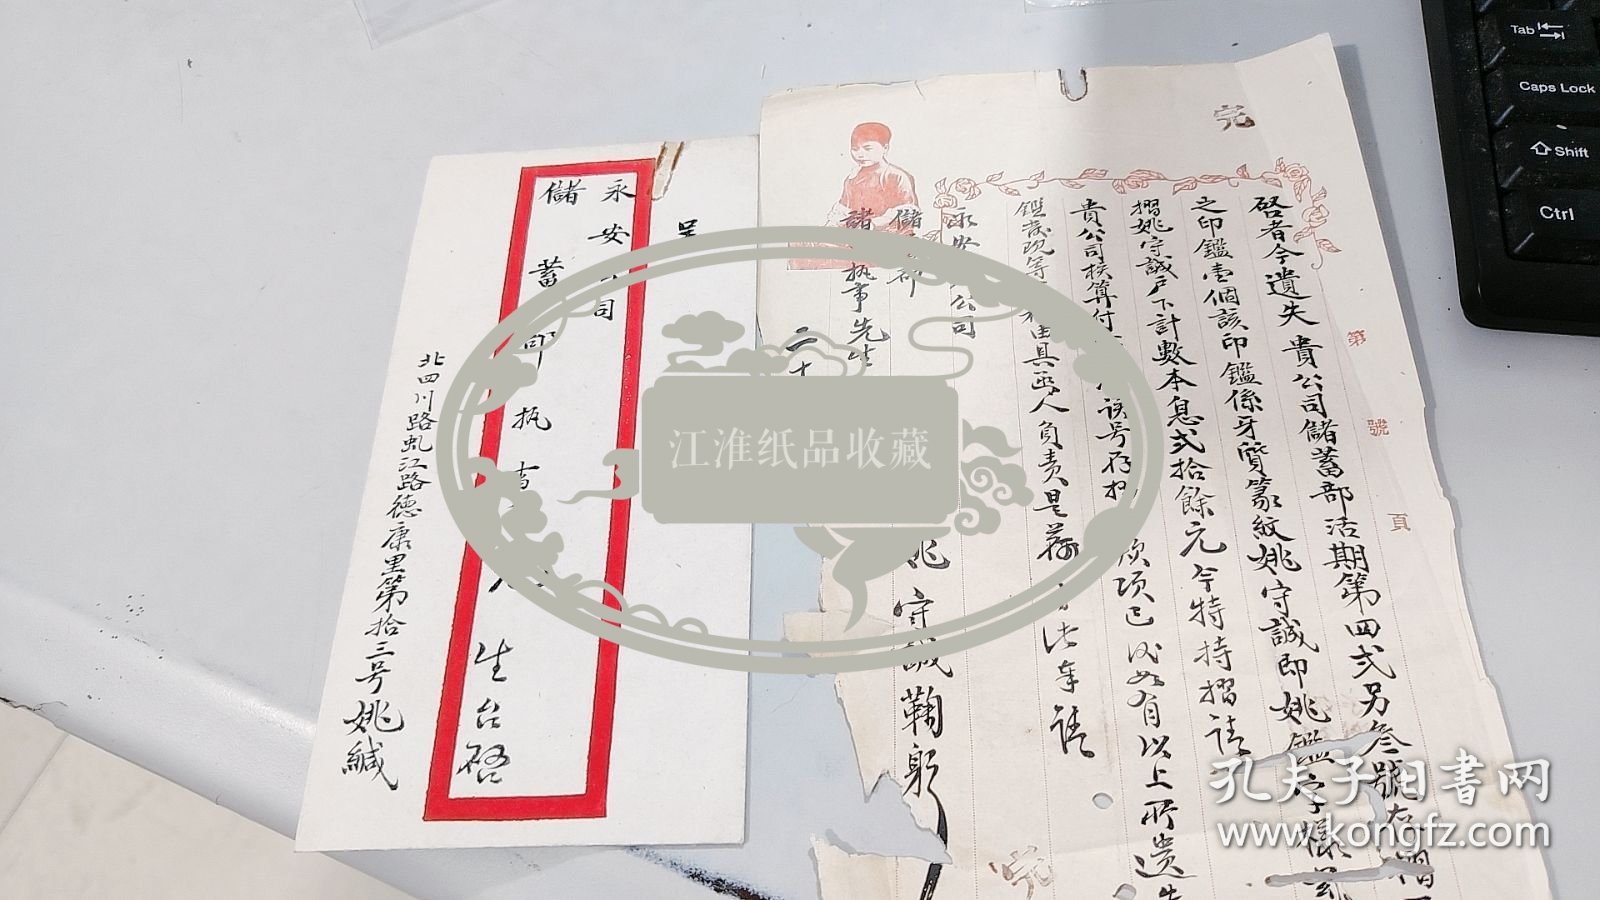 呈
永安公司
儲蓄部執事先生台啓
北四川路虬江路德康里第拾三号姚緘
完
第 號 頁
啓者今遺失 貴公司儲蓄部活期第四弍另叁號存摺
之印鑑壹個該印鑑係牙質篆紋姚守誠即姚鑑字樣
摺姚守誠戶下計數本息弍拾餘元今特持摺請
貴公司核算付 該号存摺 項已 如有以上所遺失
鑑 等 具函人負責是荷 請
永安公司
儲蓄部
諸執事先生
姚守誠鞠躬
二十
完
江淮纸品收藏
孔夫子旧书网
www.kongfz.com
Tab
Caps Lock
Shift
Ctrl